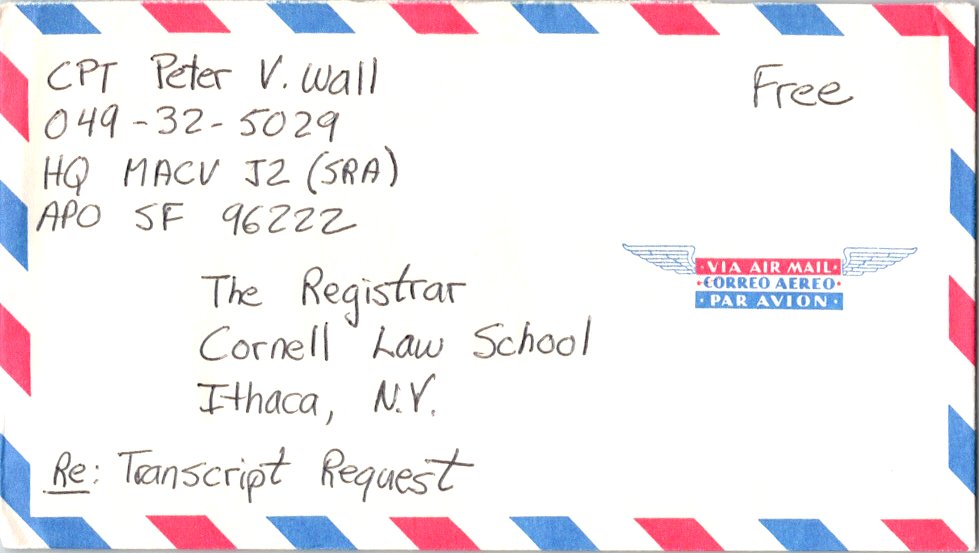 CPT Peter V. Wall
049-32-5029
HQ MACV J2 (SRA)
APO SF 96222
Free
VIA AIR MAIL
CORREO AEREO
PAR AVION
The Registrar
Cornell Law School
Ithaca, N.Y.
Re: Transcript Request